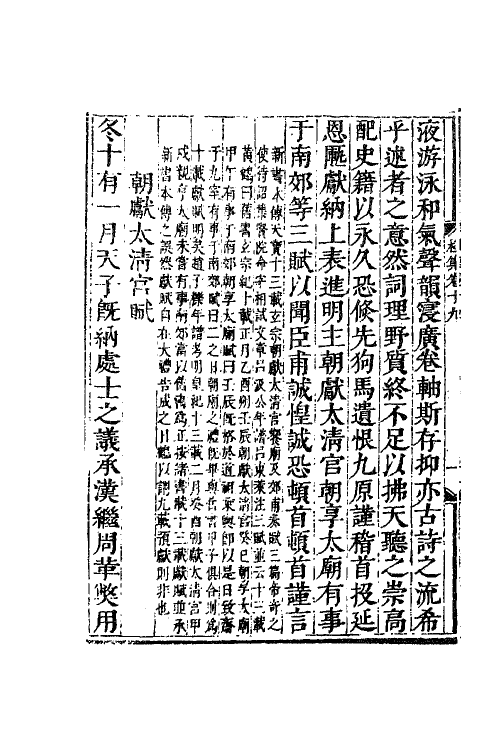 液游泳和氣聲韻寖廣卷軸斯存抑亦古詩之流希
乎述者之意然詞理野質終不足以拂天聽之崇高
配史籍以永久恐倐先狗馬遺恨九原謹稽首投延
恩匭獻納上表進明主朝獻太淸宮朝享太廟有事
于南郊等三賦以聞臣甫誠惶誠恐頓首頓首謹言
新書本傳天寶十三載玄宗朝獻太淸宮饗廟及郊甫奏賦三篇帝奇之
使待詔集賢院命宰相試文章呂汲公年譜呂東萊注三賦並云十三載
黃鶴曰舊書玄宗紀十載正月乙酉朔壬辰朝獻太淸宮癸巳朝享太廟
甲午有事于南郊朝享太廟賦曰壬辰旣格於道祖乘輿卽以是日致齋
于九室有事于南郊賦曰二之日朝廟之禮旣畢與甲子俱合則爲
十載獻賦明矣趙子櫟年譜考明皇紀十三載二月癸酉朝獻太淸宮甲
戌親享太廟未嘗有事南郊當以舊譜爲正按諸書載十三載獻賦並承
新書本傳之誤然獻賦自在大禮告成之日鶴以謂九載預獻則非也
朝獻太淸宮賦
冬十有一月天子旣納處士之議承漢繼周革獘用